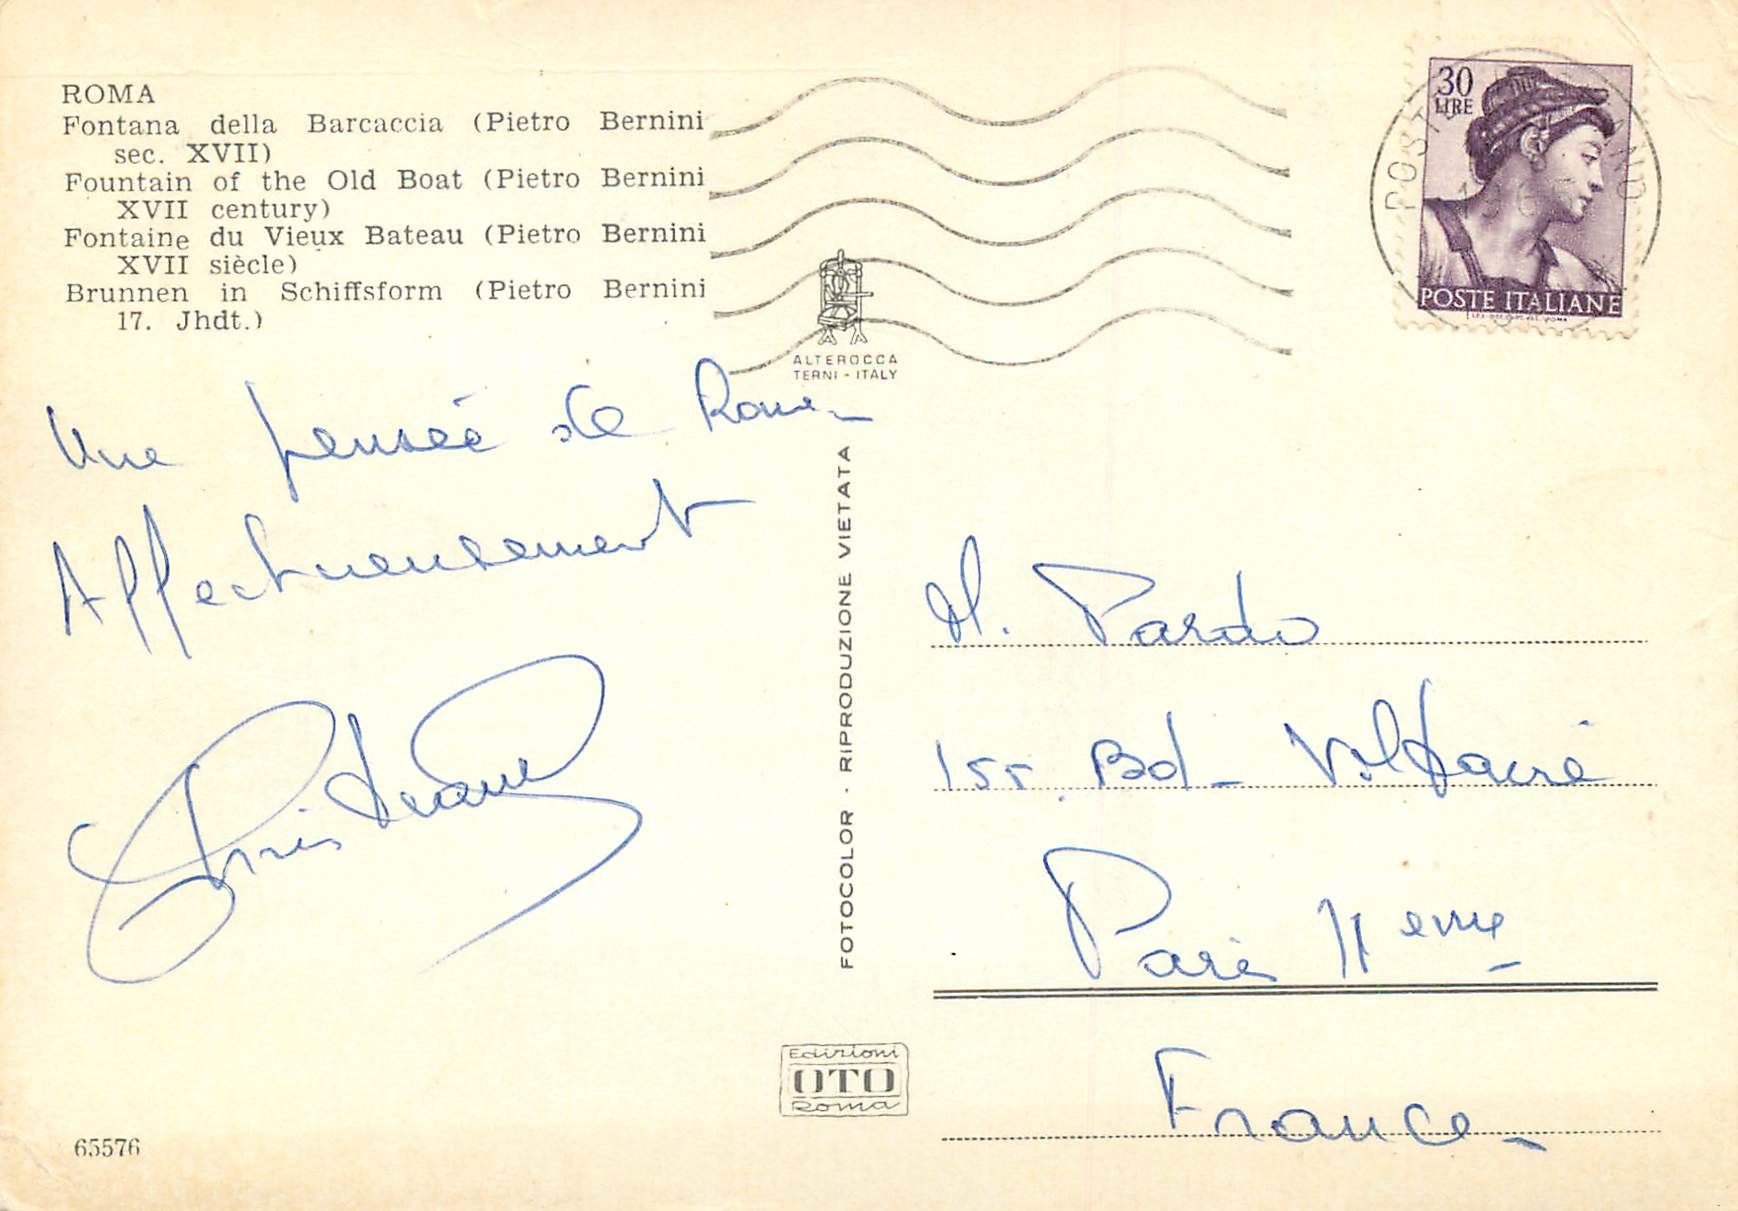 ROMA
Fontana della Barcaccia (Pietro Bernini
sec. XVII)
Fountain of the Old Boat (Pietro Bernini
XVII century)
Fontaine du Vieux Bateau (Pietro Bernini
XVII siècle)
Brunnen in Schiffsform (Pietro Bernini
17. Jhdt.)
30
LIRE
POSTE ITALIANE
ALTEROCCA
TERNI - ITALY
Une pensée de Rome
Affectueusement
FOTOCOLOR - RIPRODUZIONE VIETATA
M. Pardo
155. Bd - Voltaire
Paris 11eme
France
Edizioni
OTO
Roma
65576